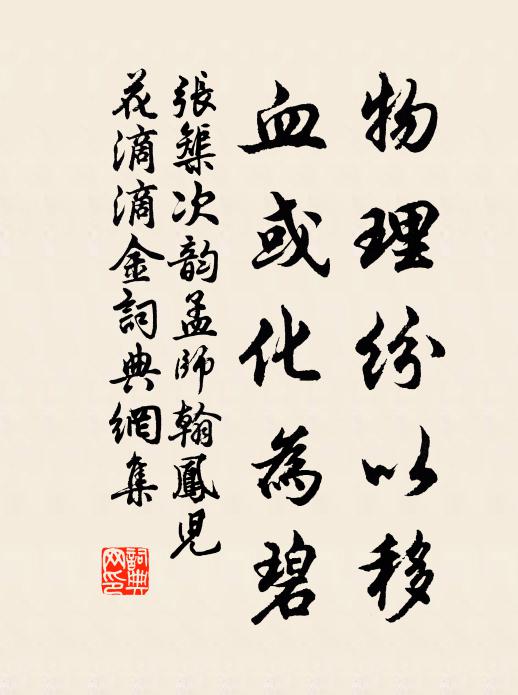 物理紛以移
血或化為碧
張榘次韵孟師翰鳳兒
花滴滴金詞典網集
詞典网印